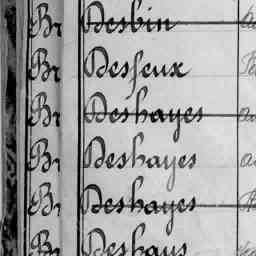 Br Desbin
Br Desseux
Br Deshayes
Br Deshayes
Br Deshayes
Br Deshays